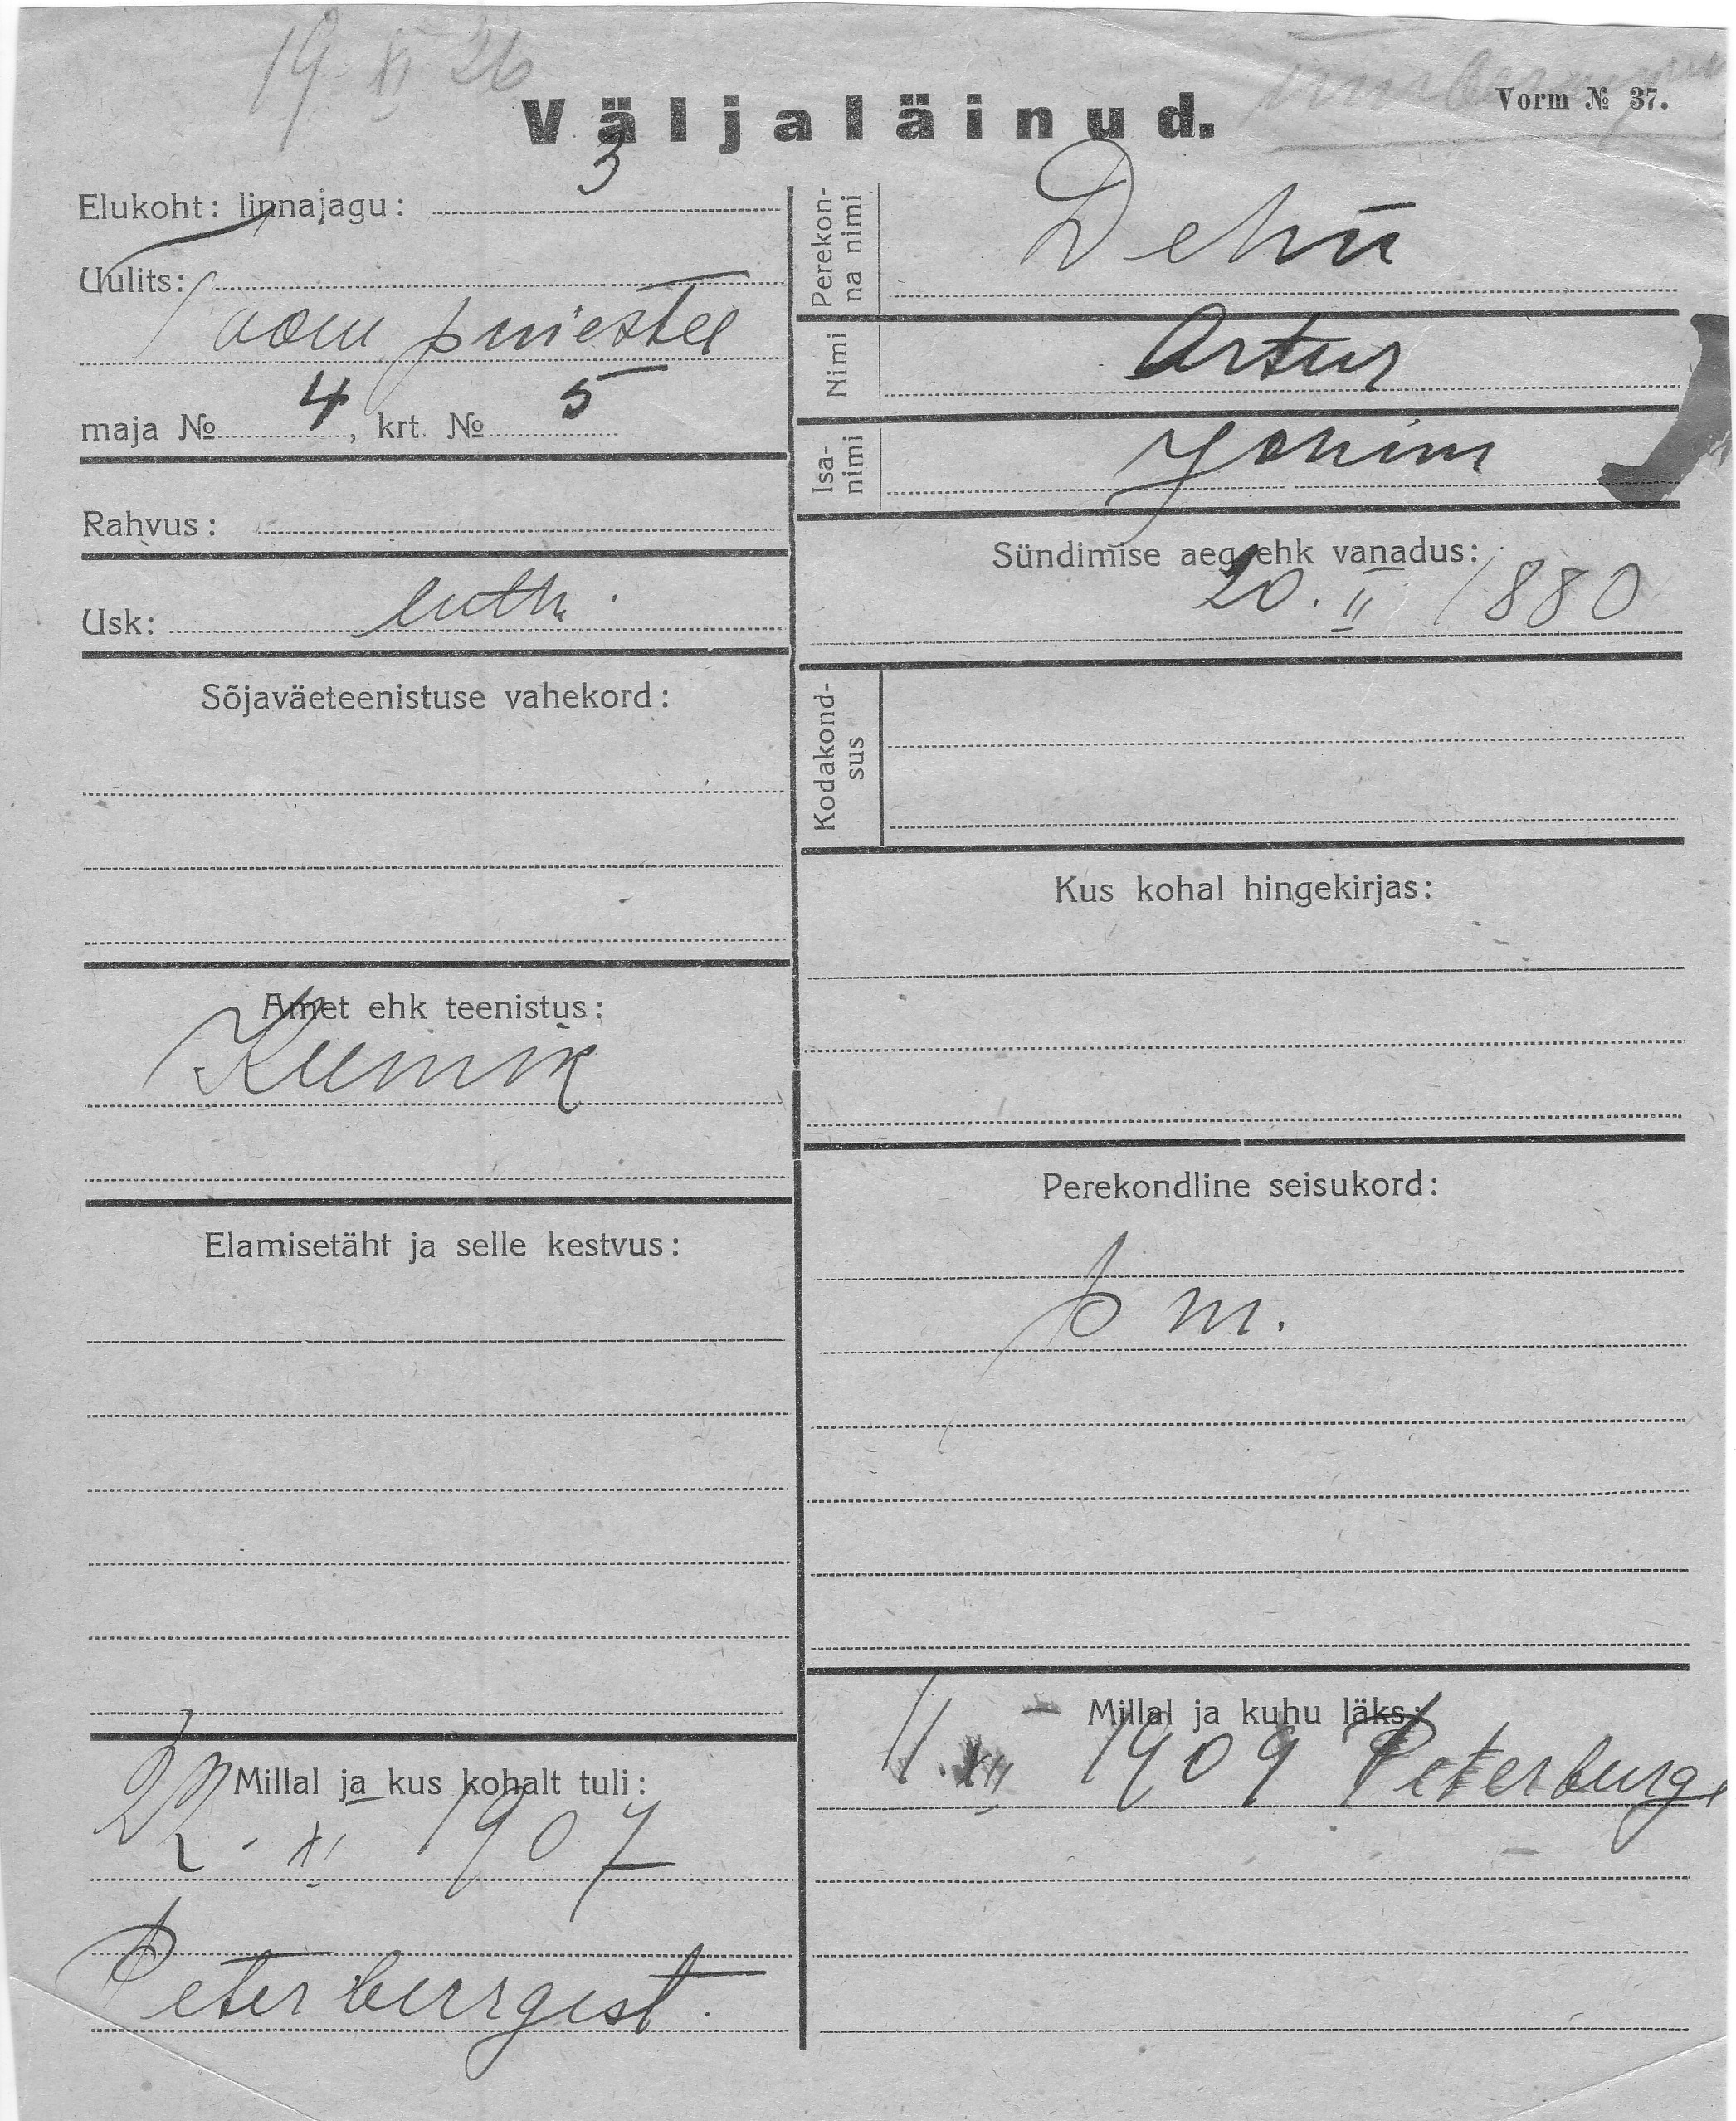 19. XI 26
Väljaläinud.
Vorm № 37.
Elukoht: linnajagu: 3
Uulits:
Toom puiestee
maja № 4, krt. № 5
Rahvus:
Usk: luth.
Sõjaväeteenistuse vahekord:
Amet ehk teenistus:
Keemik
Elamisetäht ja selle kestvus:
Millal ja kus kohalt tuli:
22. XI 1907
Peterburgist.
Perekonna nimi
Nimi Artur
Isanimi
Sündimise aeg ehk vanadus:
20. II 1880
Kodakondsus
Kus kohal hingekirjas:
Perekondline seisukord:
p m.
Millal ja kuhu läks:
11. XII 1909 Peterburg